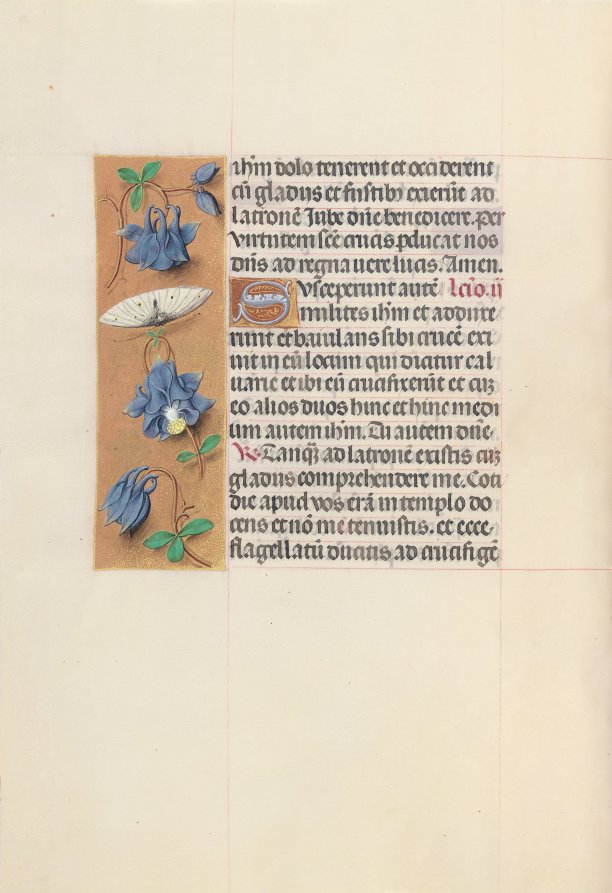 ihm̄ dolo tenerent et occiderent
cū gladiis et fustibꝫ exierūt ad
latronē Iube dn̄e benedicere. Per
virtutem scē crucis ꝑducat nos
dn̄s ad regna uere lucis. Amen.
Susceperunt autē lc̄io. ij
milites ihm̄ et adduxe
runt et baiulans sibi crucē exi
uit in eū locum qui dicitur cal
uarie et ibi eū crucifixerūt et cū
eo alios duos hinc et hinc medi
um autem ihm̄. Tu autem dn̄e.
℟. Tanqꝫ ad latronē existis cū
gladiis comprehendere me. Coti
die apud vos erā in templo do
cens et nō me tenuistis. et ecce
flagellatū ducitis ad crucifigē